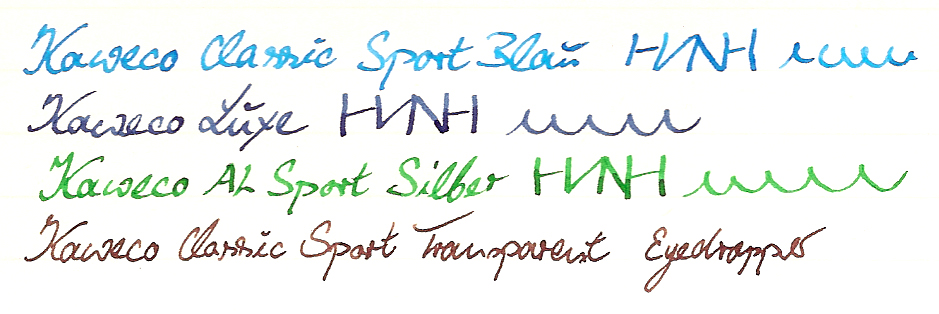 Kaweco Classic Sport Blau HNH
Kaweco Luxe HNH
Kaweco AL Sport Silber HNH
Kaweco Classic Sport Transparent Eyedropper